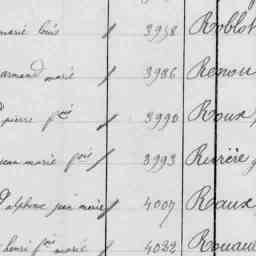 marie louis // 3958 Roblot
armand marie // 3986 Renou
pierre fçois // 3990 Roux
jean marie fçois // 3993 Rivière
d'alphonse jean marie // 4007 Raux
henri fçois marie // 4022 Rouault